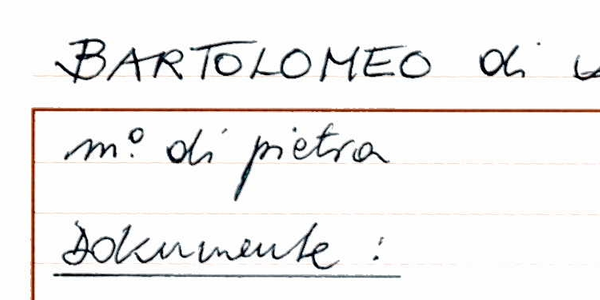 BARTOLOMEO di
m.º di pietra
Dokumente :